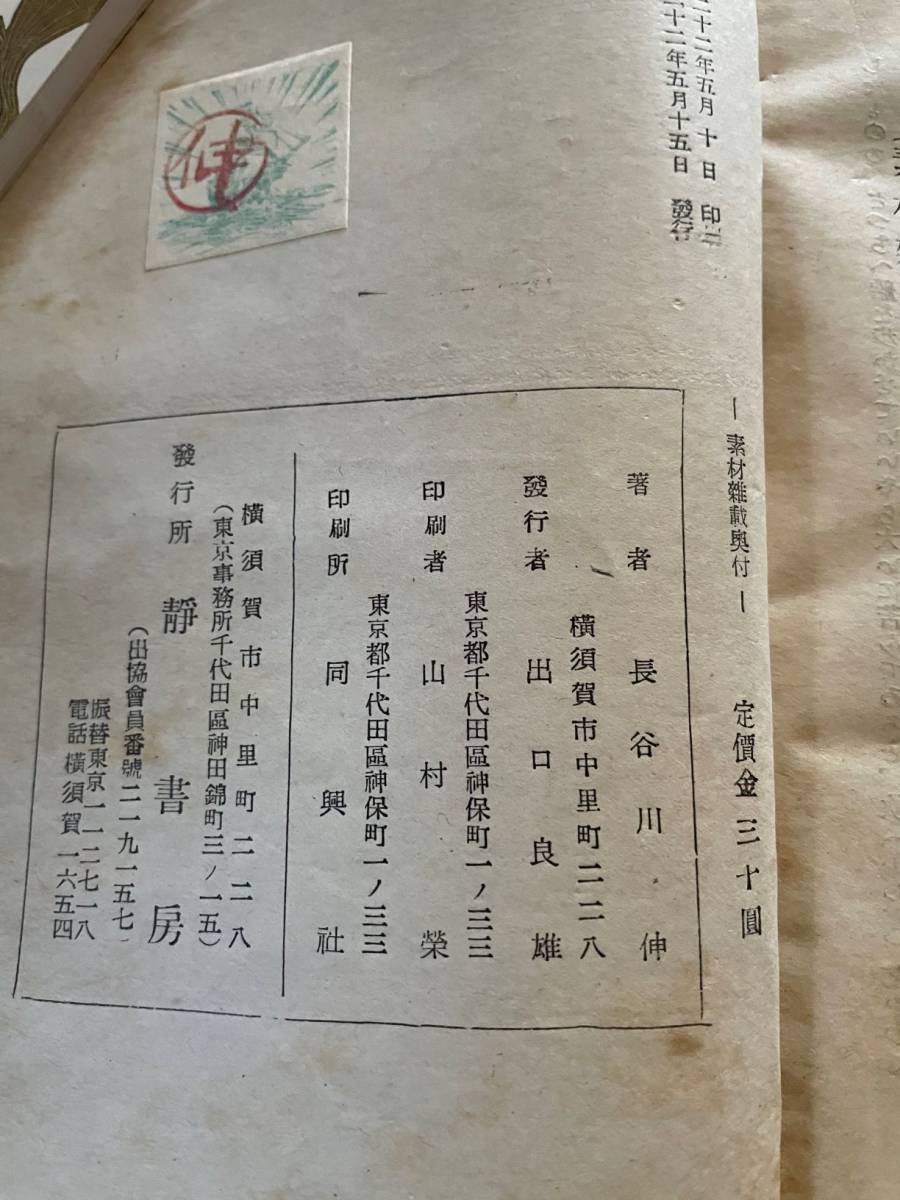 二十二年五月十日 印
二十二年五月十五日 發行
伸
—素材雜載奥付—
定價金三十圓
著者 長谷川伸
横須賀市中里町二二八
發行者 出口良雄
東京都千代田區神保町一ノ三三
印刷者 山村榮
東京都千代田區神保町一ノ三三
印刷所 同興社
横須賀市中里町二二八
(東京事務所千代田區神田錦町三ノ一五)
發行所 靜書房
(出協會員番號二一九一五七
振替東京一一二七一八
電話横須賀一六五四